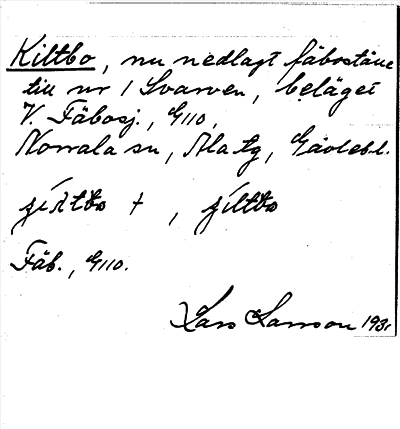 Kiltbo, nu nedlagt fäboställe
till nr 1 Svarven, beläget
V. Fäbosj., G110,
Norrala sn, Ala tg, Gävlebl.
, 
Fäb., G110.
Lars Larsson 1931